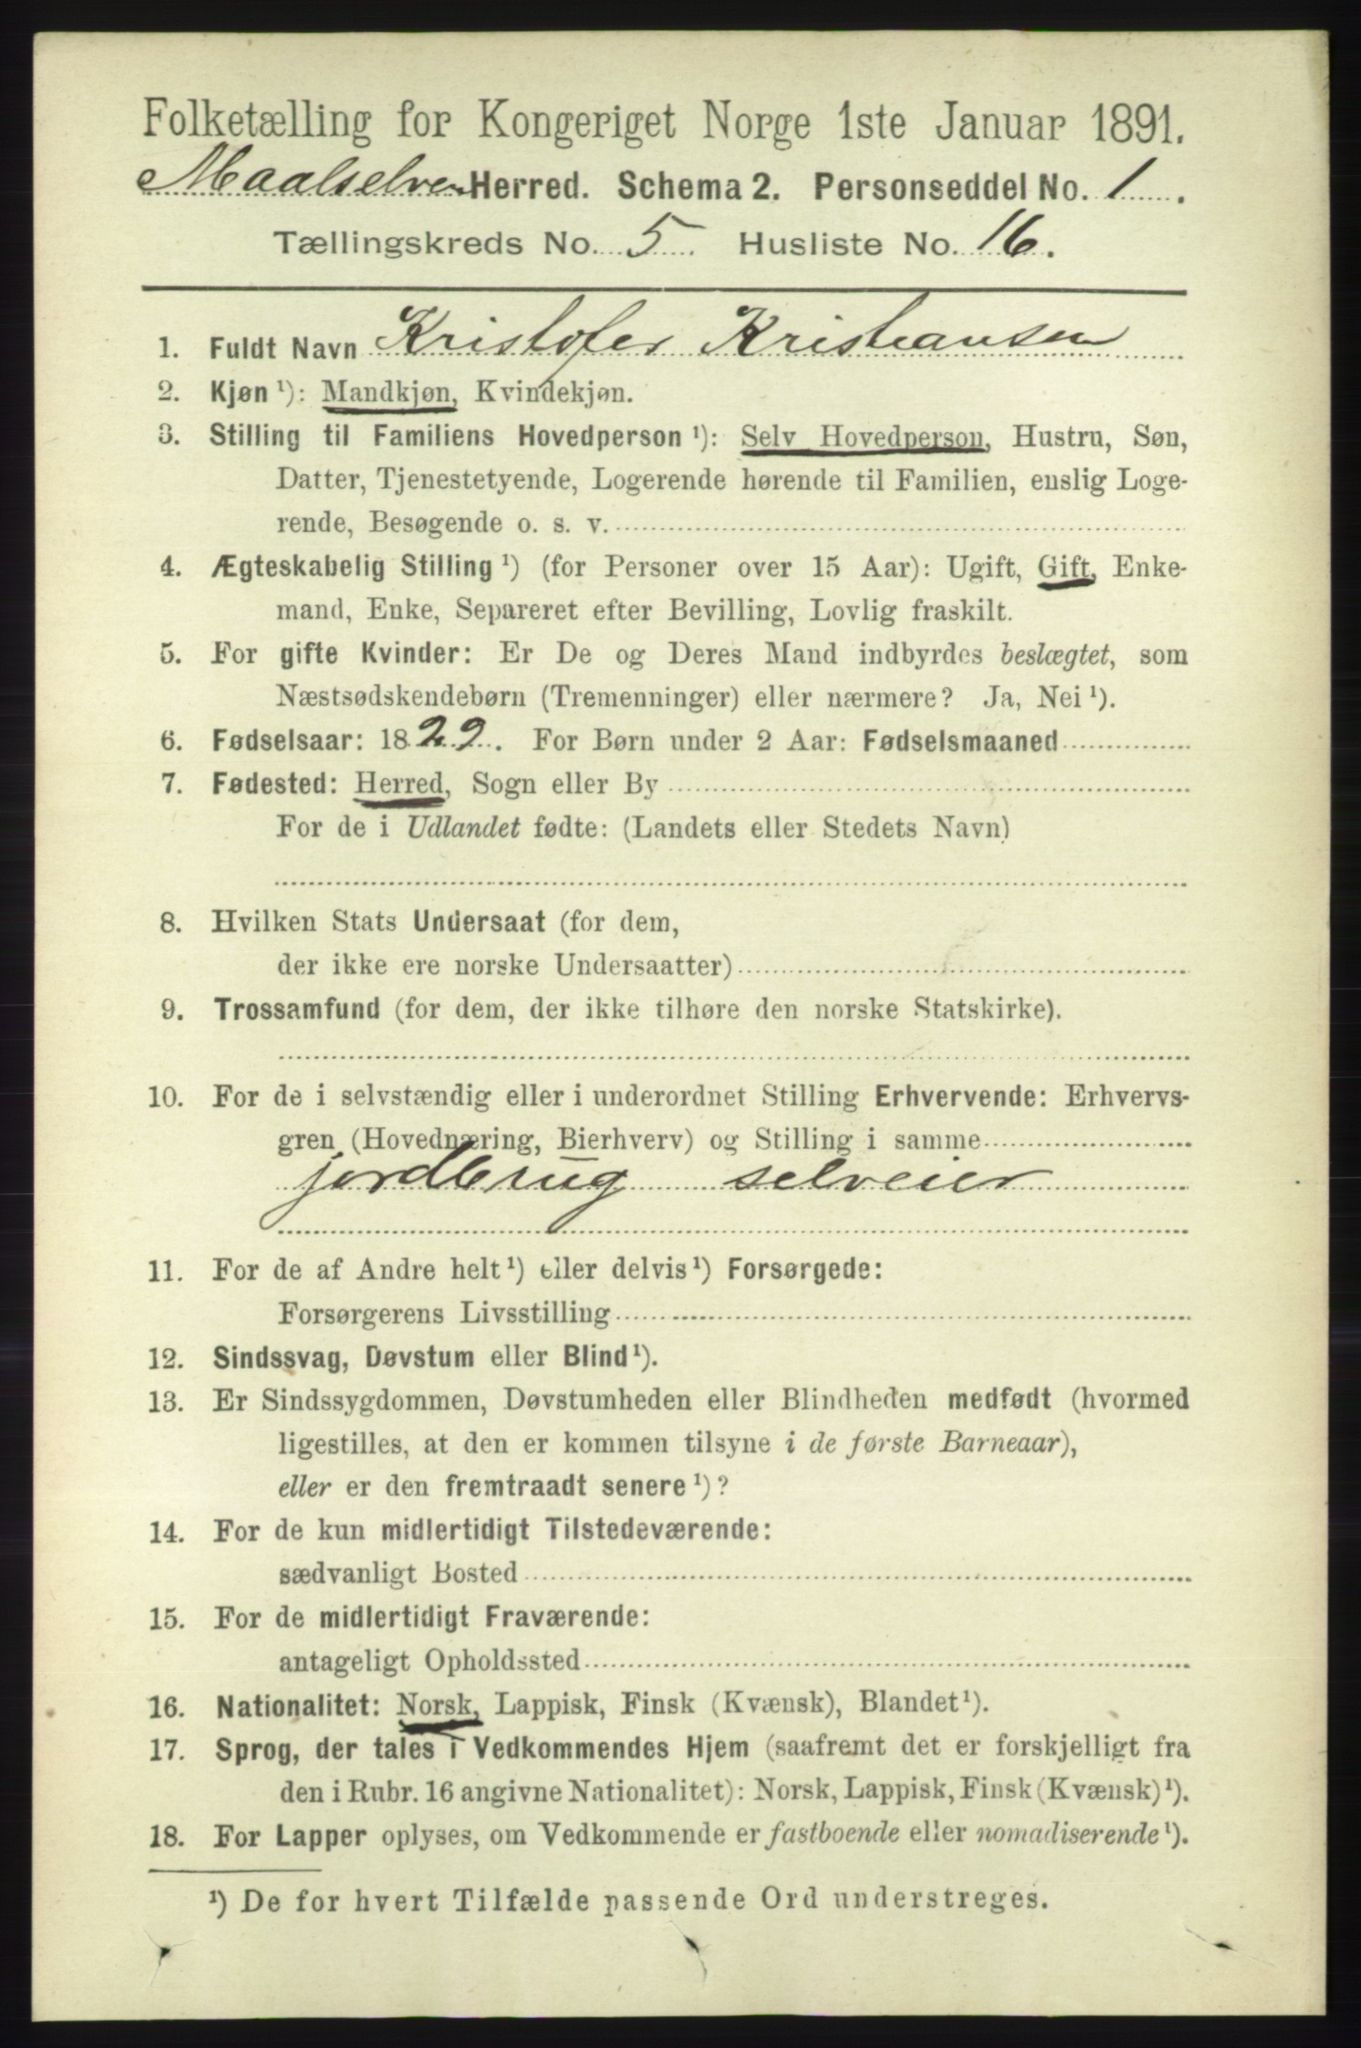 Folketælling for Kongeriget Norge 1ste Januar 1891.
Maalselven Herred. Schema 2. Personseddel No. 1.
Tællingskreds No. 5. Husliste No. 16.
1. Fuldt Navn Kristofer Kristiansen
2. Kjøn ¹): Mandkjøn, Kvindekjøn.
3. Stilling til Familiens Hovedperson ¹): Selv Hovedperson, Hustru, Søn,
Datter, Tjenestetyende, Logerende hørende til Familien, enslig Loge-
rende, Besøgende o. s. v.
4. Ægteskabelig Stilling ¹) (for Personer over 15 Aar): Ugift, Gift, Enke-
mand, Enke, Separeret efter Bevilling, Lovlig fraskilt.
5. For gifte Kvinder: Er De og Deres Mand indbyrdes beslægtet, som
Næstsødskendebørn (Tremenninger) eller nærmere? Ja, Nei ¹).
6. Fødselsaar: 1829. For Børn under 2 Aar: Fødselsmaaned
7. Fødested: Herred, Sogn eller By
For de i Udlandet fødte: (Landets eller Stedets Navn)
8. Hvilken Stats Undersaat (for dem,
der ikke ere norske Undersaatter)
9. Trossamfund (for dem, der ikke tilhøre den norske Statskirke).
10. For de i selvstændig eller i underordnet Stilling Erhvervende: Erhvervs-
gren (Hovednæring, Bierhverv) og Stilling i samme
jordbrug selveier
11. For de af Andre helt ¹) eller delvis ¹) Forsørgede:
Forsørgerens Livsstilling
12. Sindssvag, Døvstum eller Blind ¹).
13. Er Sindssygdommen, Døvstumheden eller Blindheden medfødt (hvormed
ligestilles, at den er kommen tilsyne i de første Barneaar),
eller er den fremtraadt senere ¹)?
14. For de kun midlertidigt Tilstedeværende:
sædvanligt Bosted
15. For de midlertidigt Fraværende:
antageligt Opholdssted
16. Nationalitet: Norsk, Lappisk, Finsk (Kvænsk), Blandet ¹).
17. Sprog, der tales i Vedkommendes Hjem (saafremt det er forskjelligt fra
den i Rubr. 16 angivne Nationalitet): Norsk, Lappisk, Finsk (Kvænsk) ¹).
18. For Lapper oplyses, om Vedkommende er fastboende eller nomadiserende ¹).
¹) De for hvert Tilfælde passende Ord understreges.